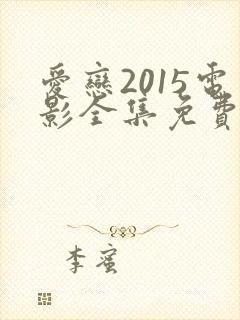 愛戀2015電
影全集免費
李蜜